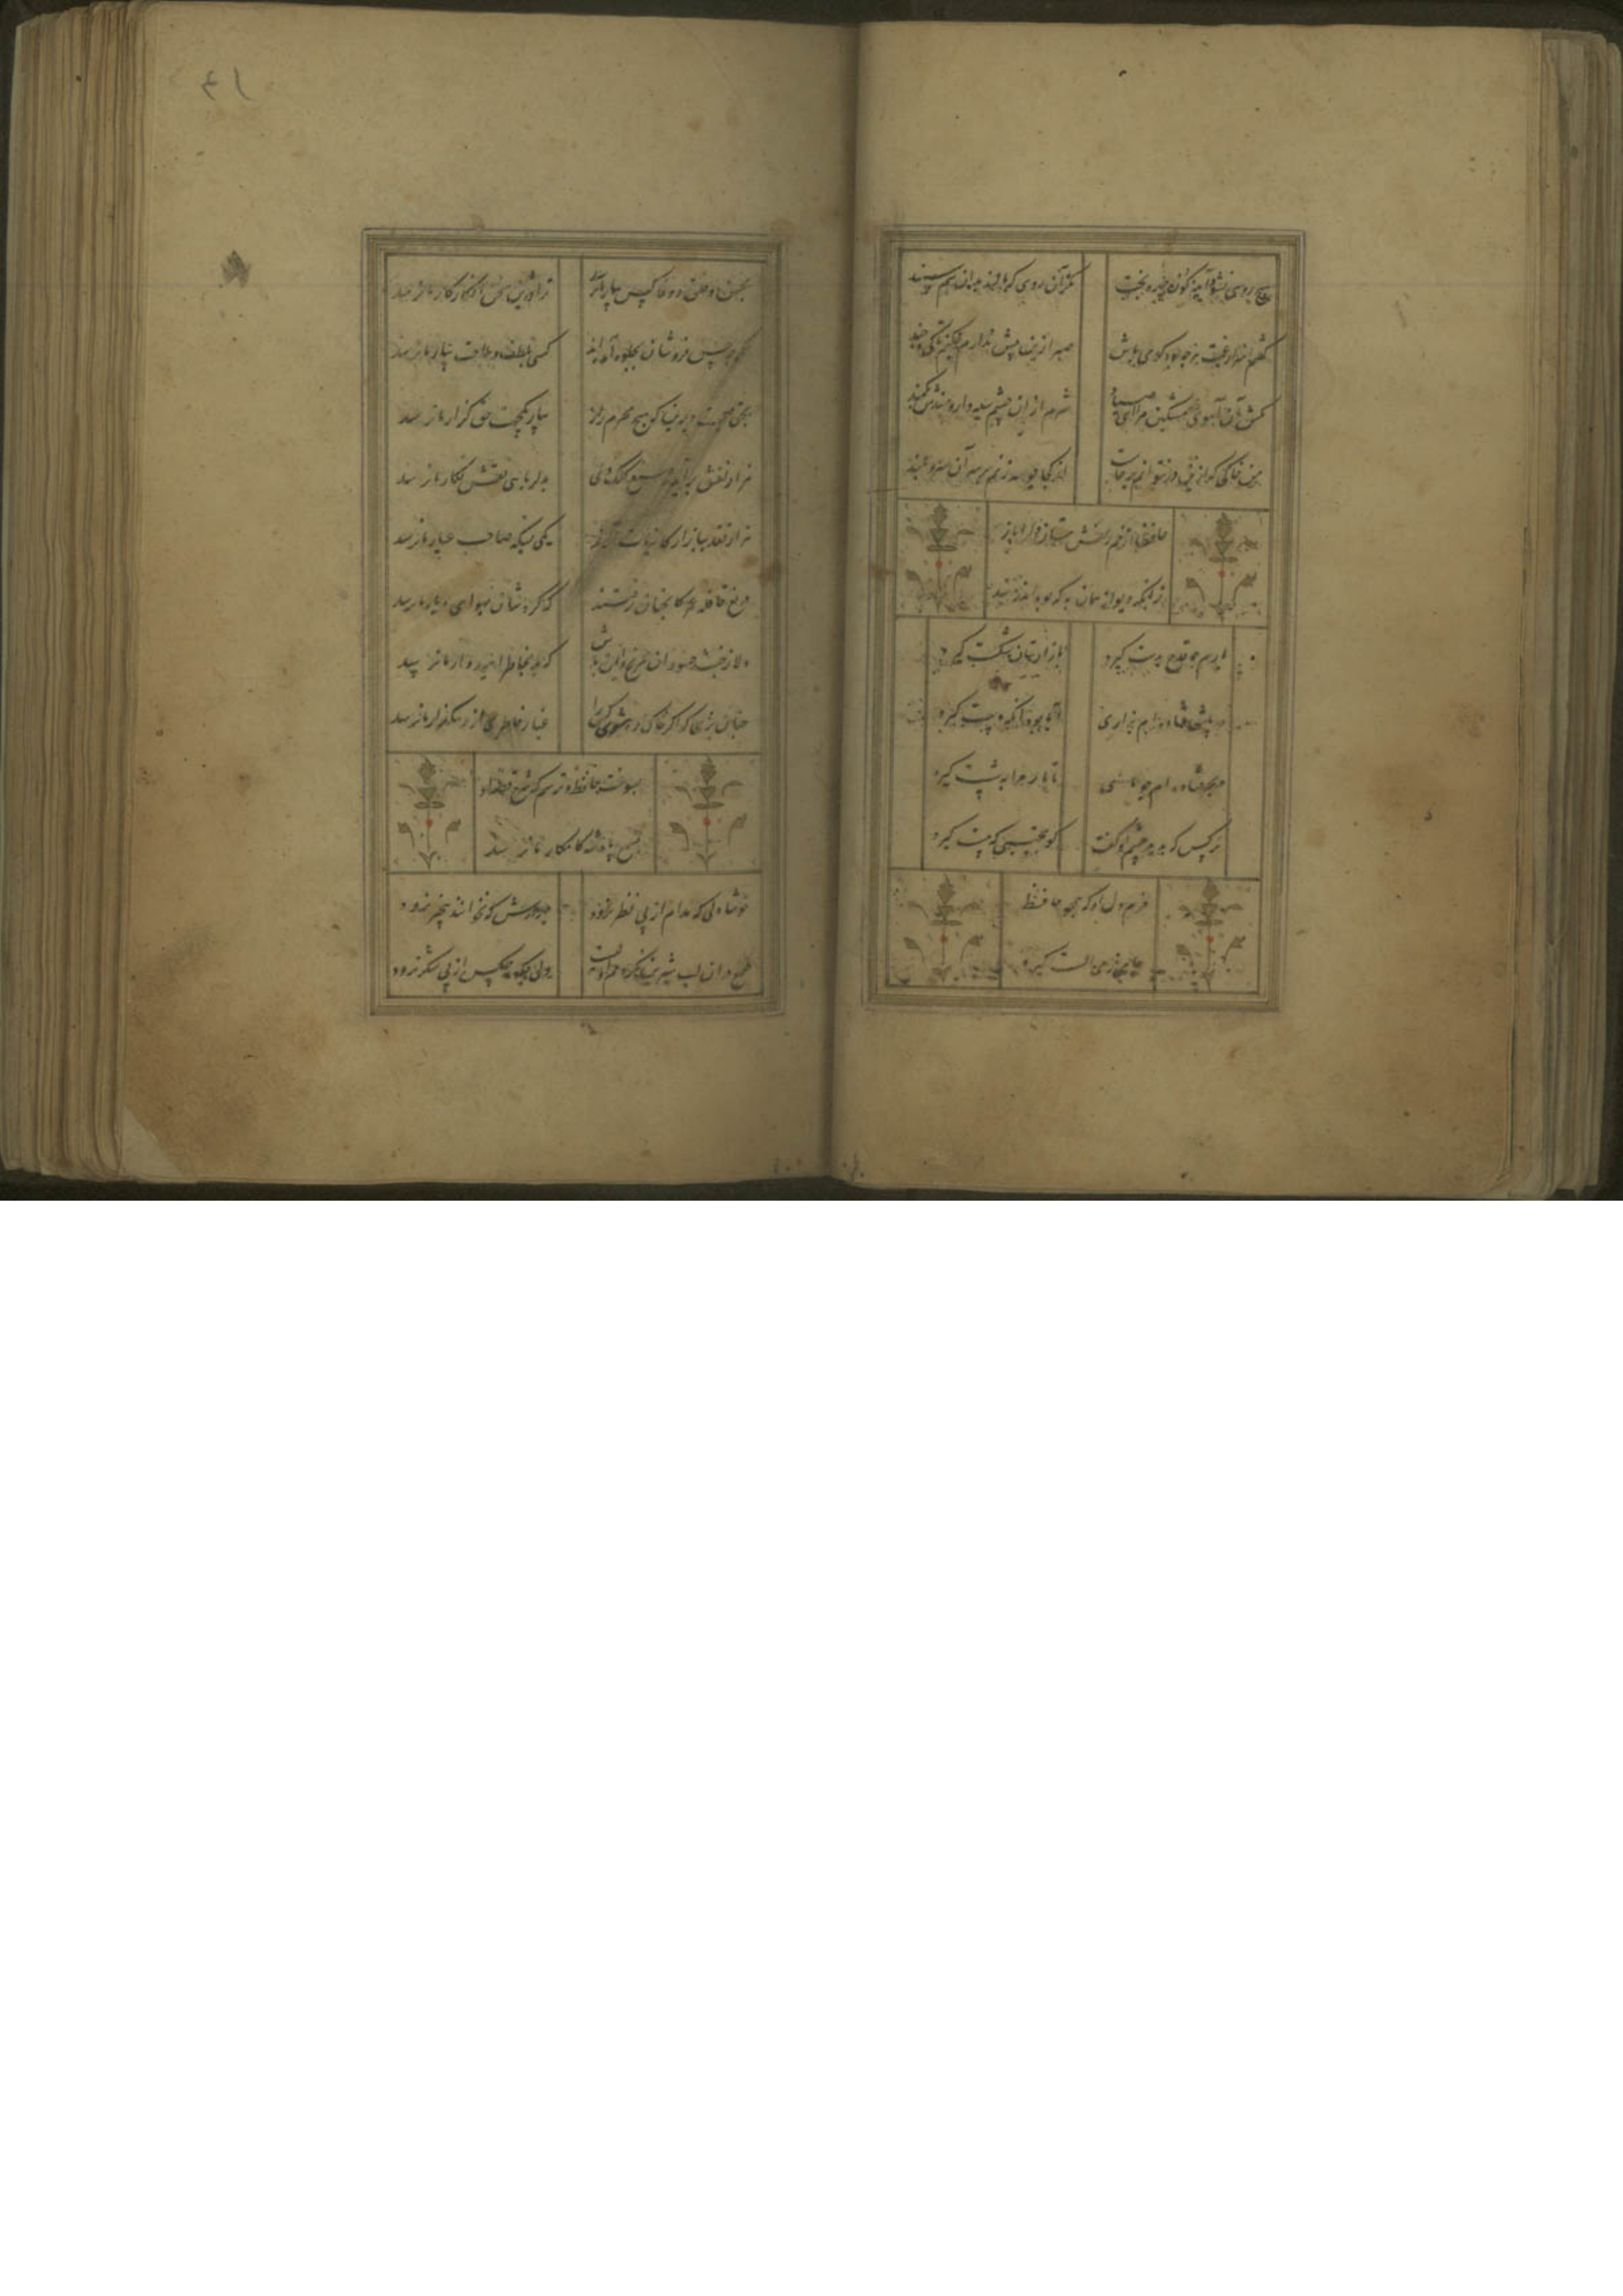 هیچ رویی نشود آینه حجله بخت
مگر آن روی که مالند در آن سم سمند
گفتم اسرار غمت هر چه بود گو می باش
صبر ازین بیش ندارم چکنم تا کی و چند
مکش آن آهوی مشکین مرا ای صیاد
شرم از آن چشم سیه دار و مبندش بکمند
من خاکی که ازین در نتوانم برخاست
از کجا بوسه زنم بر سر آن قصر بلند
حافظ از خم زلفش مستان دل را باز
زانکه دیوانه همان به که بود اندر بند
یارم چو قدح بدست گیرد
بازار بتان شکست گیرد
در پاش فتاده ام بزاری
آیا بود آنکه دست گیرد
در بحر فتاده ام چو ماهی
تا یار مرا بشست گیرد
هرکس که بدید چشم او گفت
کو محتسبی که مست گیرد
خرم دل او که همچو حافظ
جامی ز می الست گیرد
۴۱
بحسن و خلق و وفا کس بیار ما نرسد
ترا درین سخن انکار کار ما نرسد
اگر چه حسن فروشان بجلوه آمده اند
کسی بلطف و ملاحت بیار ما نرسد
بحق صحبت دیرین که هیچ محرم راز
بیار یک جهت حق گزار ما نرسد
هزار نقش برآید ز کلک صنع و یکی
بدلربایی نقش نگار ما نرسد
هزار نقد ببازار کاینات آرند
یکی بسکه صاحب عیار ما نرسد
دریغ قافله عمر کانچنان رفتند
که گردشان بهوای دیار ما نرسد
دلا ز خبث حسودان مرنج و ایمن باش
که بد بخاطر امیدوار ما نرسد
چنان بزی که اگر خاک ره شوی کس را
غبار خاطری از رهگذار ما نرسد
بسوخت حافظ و ترسم که شرح قصه او
بسمع پادشه کامکار ما نرسد
خوشا دلی که مدام از پی نظر نرود
بهر درش که بخوانند بیخبر نرود
طمع در آن لب شیرین نکردنم اولیست
ولی چگونه مگس از پی شکر نرود